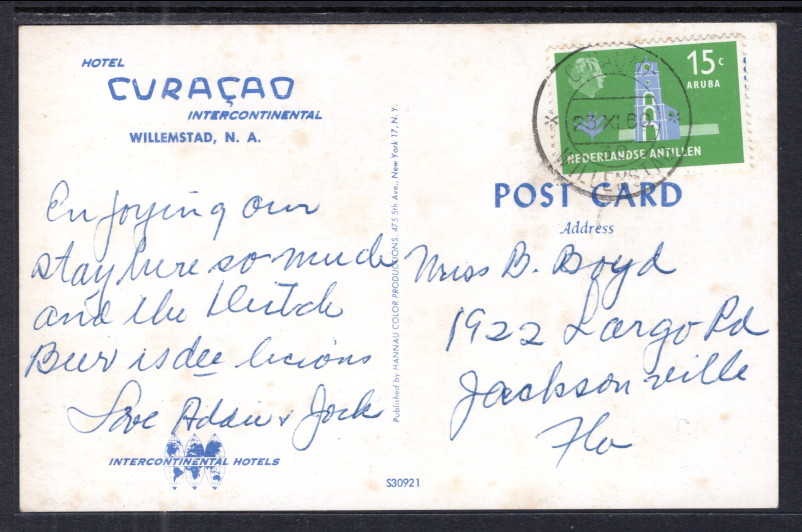 HOTEL
CURAÇAO
INTERCONTINENTAL
WILLEMSTAD, N. A.
Enjoying our
stay here so much
and the Dutch
Beer is dee licious
Love Addie & Jock
INTERCONTINENTAL HOTELS
Published by HANNAU COLOR PRODUCTIONS, 475 5th Ave., New York 17, N.Y.
S30921
15 c
ARUBA
NEDERLANDSE ANTILLEN
CURAÇAO
23 XI 60
WILLEMSTAD
POST CARD
Address
Miss B. Boyd
1922 Largo Rd
Jacksonville
Fla